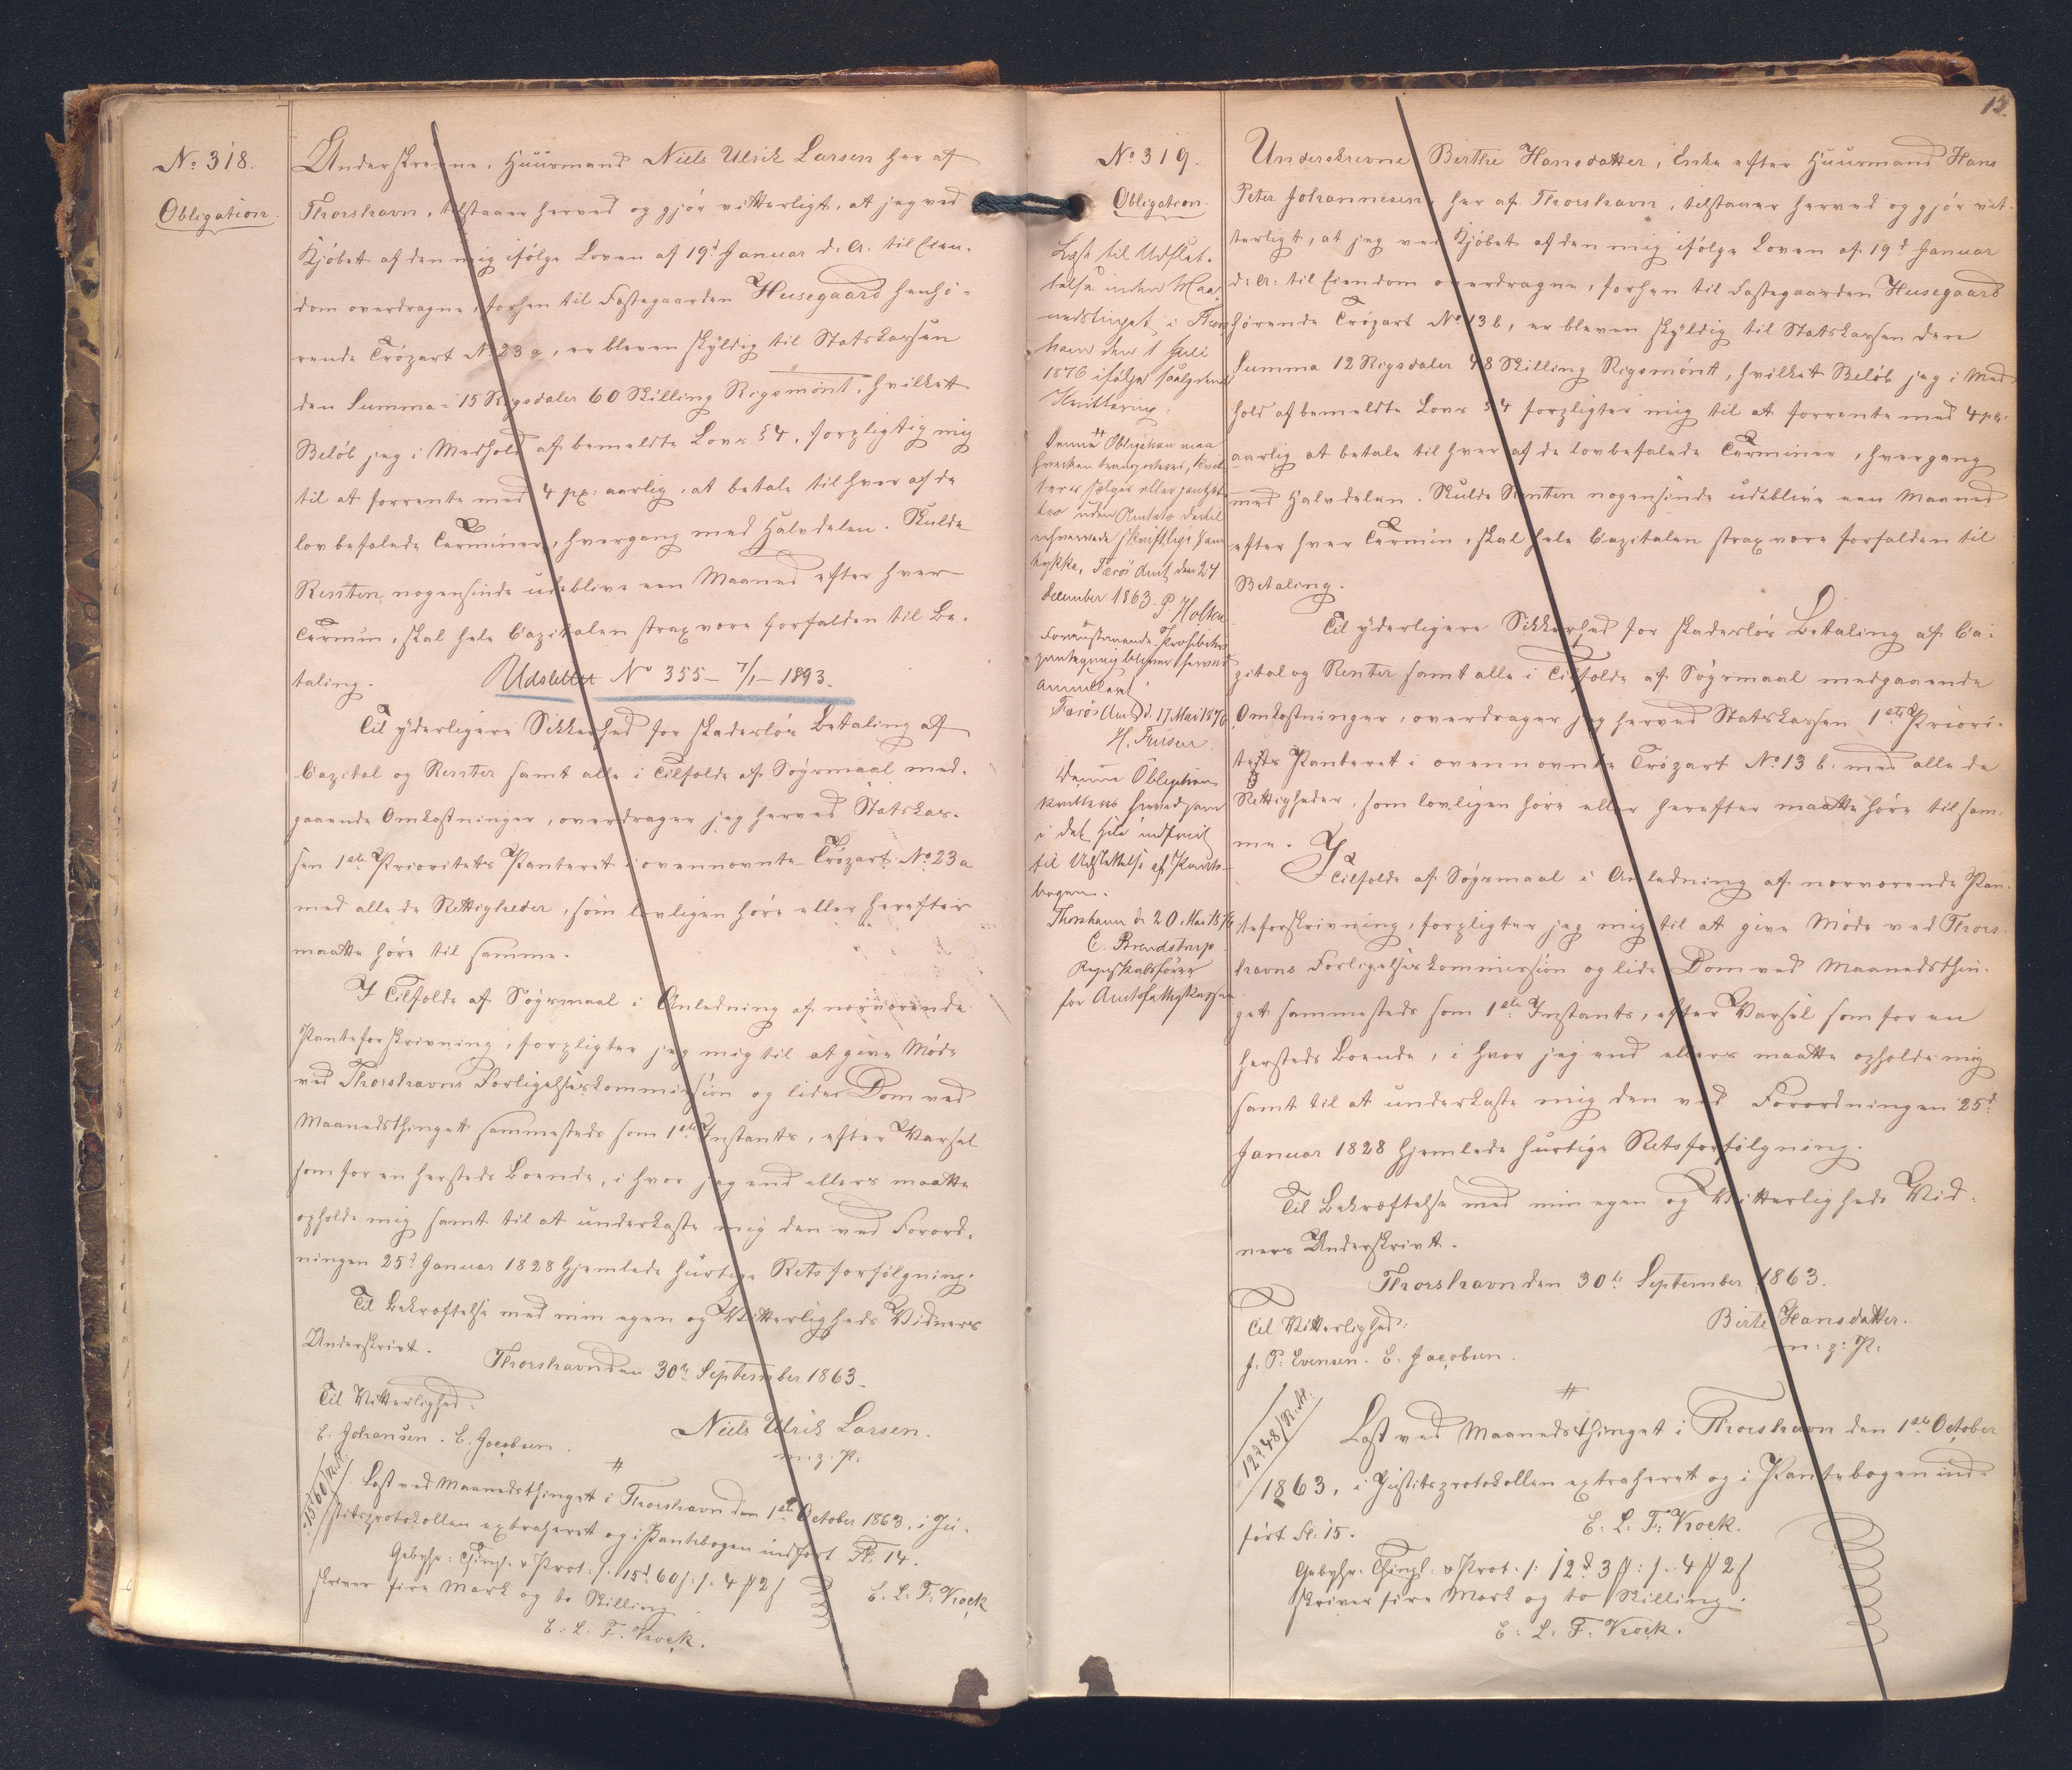 No 318.
Obligation.
Underskrevne, Huusmand Niels Ulrik Larsen her af
Thorshavn, tilstaaer herved og gjör vitterligt, at jeg ved
Kjöbet af den mig ifölge Loven af 19d Januar d. A. til Eien-
dom overdragne, forhen til Fæstegaarden Husegaard henhö-
rende Tröpart No 23 a, er bleven skyldig til Statskassen
den Summa = 15 Rigsdaler 60 Skilling Rigsmönt, hvilket
Belöb jeg i Medhold af bemeldte Lovs § 4, forpligtig mig
til at forrente med 4 pC: aarlig, at betale til hver af de
lovbefalede Terminer, hvergang med Halvdelen. Skulde
Renten nogensinde udeblive een Maaned efter hver
Termin, skal hele Capitalen strax være forfalden til Be-
taling.
Udslettet No 355 - 7/1 - 1893.
Til yderligere Sikkerhed for skadeslös Betaling af
Capital og Renter samt alle i Tilfælde af Sögsmaal med-
gaaende Omkostninger, overdrager jeg herved Statskas-
sen 1ste Prioritets Panteret i ovennævnte Tröpart No 23 a
med alle de Rettigheder, som lovligen höre eller herefter
maatte höre til samme.
I Tilfælde af Sögsmaal i Anledning af nærværende
Panteforskrivning, forpligter jeg mig til at give Möde
ved Thorshavns Forligelseskommission og lider Dom ved
Maanedsthinget sammesteds som 1ste Instants, efter Varsel
som for en hersteds Boende, i hvor jeg end ellers maatte
opholde mig samt til at underkaste mig den ved Forord-
ningen 25d Januar 1828 hjemlede hurtige Retsforfölgning.
Til Bekræftelse med min egen og Vitterligheds Vidners
Underskrivt.
Thorshavn den 30te September 1863.
Til Vitterlighed:
Niels Ulrik Larsen.
E. Johansen. C. Jacobsen.
m. p. P.
#
15d 60 / R.M.
Læst ved Maanedsthinget i Thorshavn den 1ste October 1863, i Ju-
stitsprotokollen extraheret og i Pantebogen indfört Fl. 14.
E. L. F. Krock
Gebyhr: Thingl. & Prot. /. 15d 60 /:/. 4 # 2 /
skriver fire Mark og to Skilling
E. L. F. Krock.
15.
No 319.
Obligation.
Læst til Udslet-
telse under Maa-
nedstinget i Thors
havn den 1 Juli
1876 ifölge saalydende
Kvittering:
"Denne Obligation maa
hverken transporteres, kvit
teres sælges eller pantsæt
tes uden Amtets dertil
erhvervede skriftlige Sam
tykke, Færö Amt den 24
December 1863. P. Holten
Foranstaaende Prohibitiv
paategning bliver herved
annulleret
Færö Amt d. 17 Mai 1876
H. Finsen.
Denne Obligation
kvitteres herved som
i det Hele indfriet
til Udslettelse af Pante-
bogen.
Thorshavn d. 20. Mai 1876
C. Brendstrup
Regnskabsförer
for Amtsfattigkassen
Underskrevne Birthe Hansdatter, Enke efter Huusmand Hans
Peter Johannesen, her af Thorshavn, tilstaaer herved og gjör vit-
terligt, at jeg ved Kjöbet af den mig ifölge Loven af 19d Januar
d. A. til Eiendom overdragne, forhen til Fæstegaarden Husegaard
hörende Tröpart No 13 b, er bleven skyldig til Statskassen den
Summa 12 Rigsdaler 48 Skilling Rigsmönt, hvilket Belöb jeg i Med
hold af bemeldte Lovs § 4 forpligter mig til at forrente med 4 pC:
aarlig at betale til hver af de lovbefalede Terminer, hvergang
med Halvdelen. Skulde Renten nogensinde udeblive een Maaned
efter hver Termin, skal hele Capitalen strax være forfalden til
Betaling.
Til yderligere Sikkerhed for skadeslös Betaling af Ca-
pital og Renter samt alle i Tilfælde af Sögsmaal medgaaende
Omkostninger, overdrager jeg herved Statskassen 1ste Priori-
tets Panteret i ovennævnte Tröpart No 13 b. med alle de
Rettigheder, som lovligen höre eller herefter maatte höre til sam-
me.
I Tilfælde af Sögsmaal i Anledning af nærværende Pan-
teforskrivning, forpligter jeg mig til at give Möde ved Thors-
havns Forligelseskommission og lide Dom ved Maanedsthin-
get sammesteds som 1ste Instants, efter Varsel som for en
hersteds Boende, i hvor jeg end ellers maatte opholde mig
samt til at underkaste mig den ved Forordningen 25d
Januar 1828 hjemlede hurtige Retsforfölgning.
Til Bekræftelse med min egen og Vitterligheds Vid-
ners Underskrivt.
Thorshavn den 30te September 1863.
Til Vitterlighed:
Birte Hansdatter.
J. P. Evensen. C. Jacobsen.
m: p: P.
#
12d 48 / R.M.
Læst ved Maanedsthinget i Thorshavn den 1ste October
1863, i Justitsprotokollen extraheret og i Pantebogen ind-
fört Fl: 15.
E. L. F. Krock.
Gebyhr. Thingl: & Prot. /: 12d 3 #:/. 4 # 2 /
skriver fire Mark og to Skilling.
E. L. F. Krock.